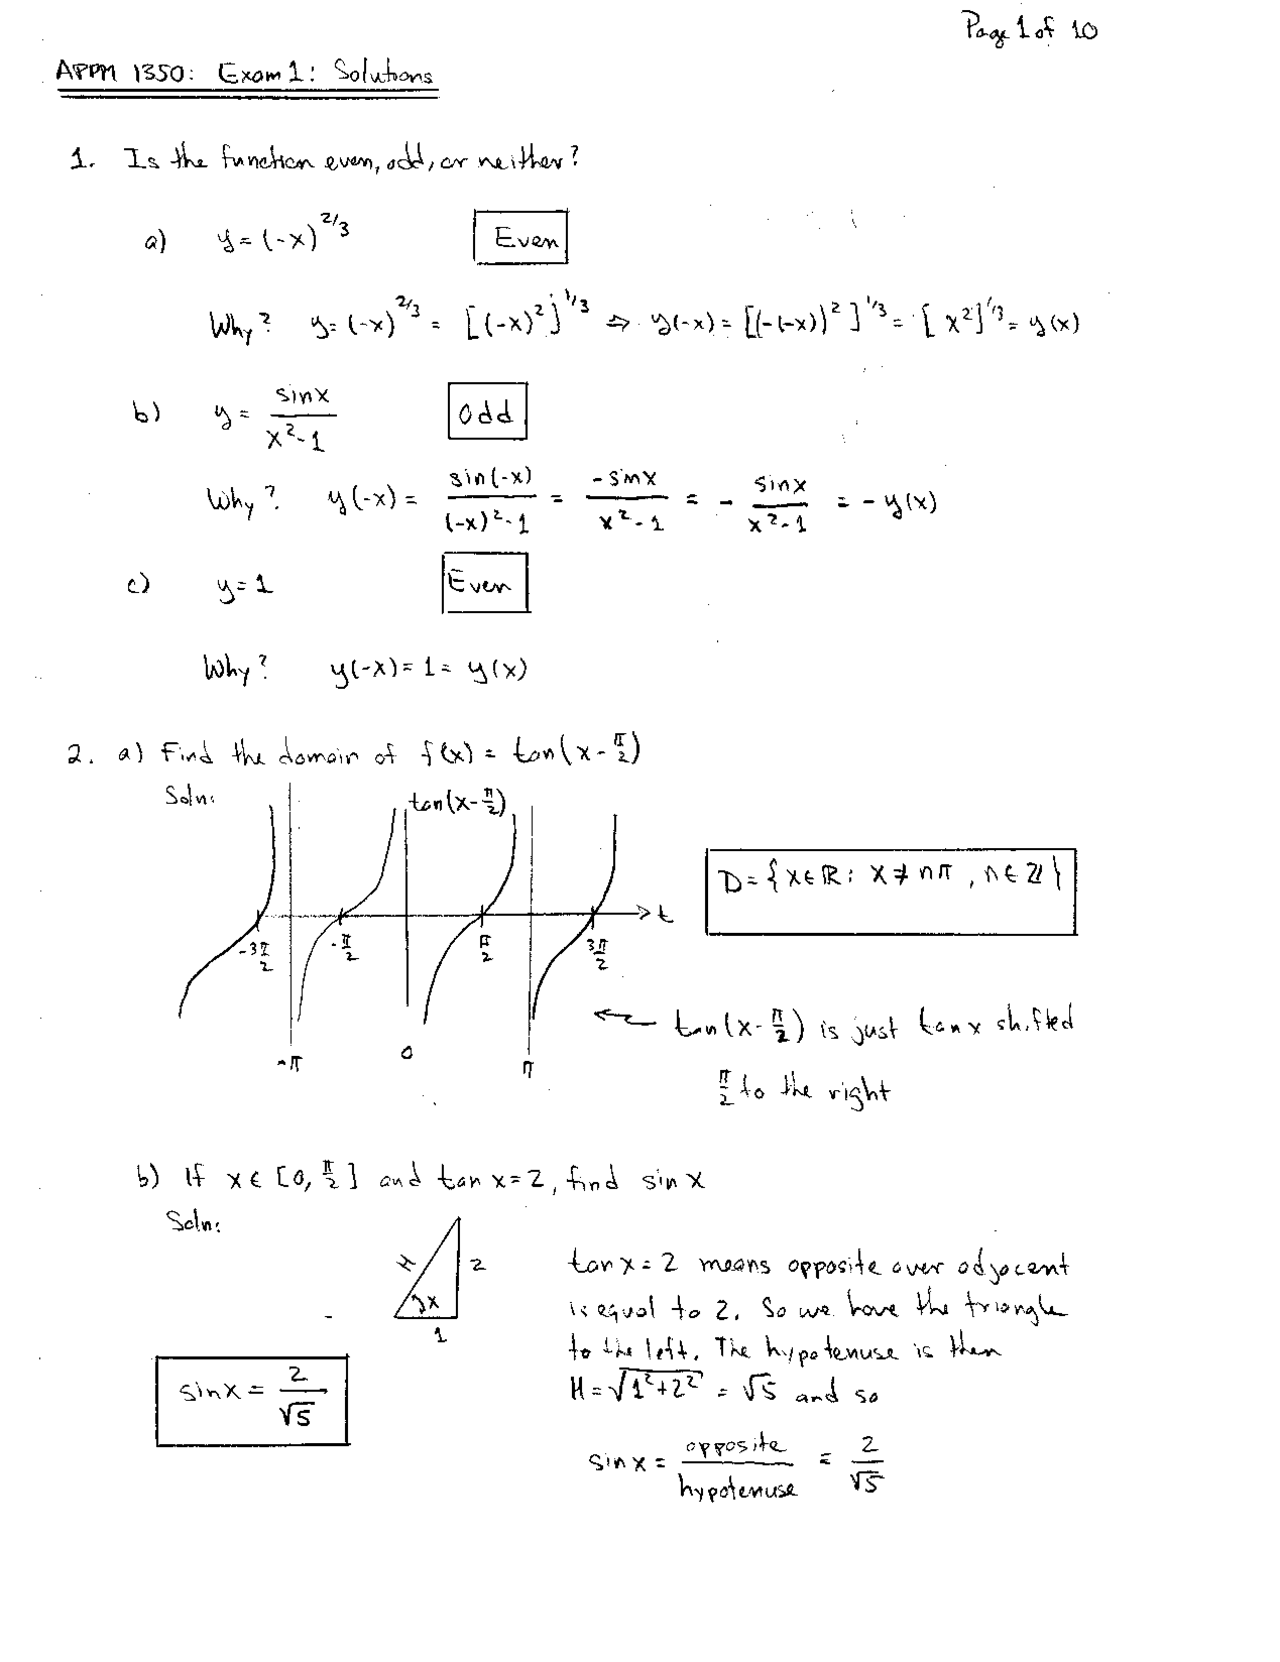 Page 1 of 10
APPM 1350: Exam 1: Solutions
1. Is the function even, odd, or neither?
a) y = (-x)^{2/3} Even
Why? y = (-x)^{2/3} = [(-x)^2]^{1/3} ⇒ y(-x) = [(-(-x))^2]^{1/3} = [x^2]^{1/3} = y(x)
b) y = sinx / (x^2-1) Odd
Why? y(-x) = sin(-x) / ((-x)^2-1) = -sinx / (x^2-1) = - sinx / (x^2-1) = -y(x)
c) y = 1 Even
Why? y(-x) = 1 = y(x)
2. a) Find the domain of f(x) = tan(x - π/2)
Soln:
tan(x - π/2)
D = {x ∈ ℝ : x ≠ nπ, n ∈ ℤ}
t
-3π/2 -π/2 π/2 3π/2
-π 0 π
tan(x - π/2) is just tan x shifted
π/2 to the right
b) If x ∈ [0, π/2] and tan x = 2, find sin x
Soln:
H 2
x
1
tan x = 2 means opposite over adjacent
is equal to 2. So we have the triangle
to the left. The hypotenuse is then
H = √(1^2+2^2) = √5 and so
sinx = 2/√5
sin x = opposite / hypotenuse = 2/√5